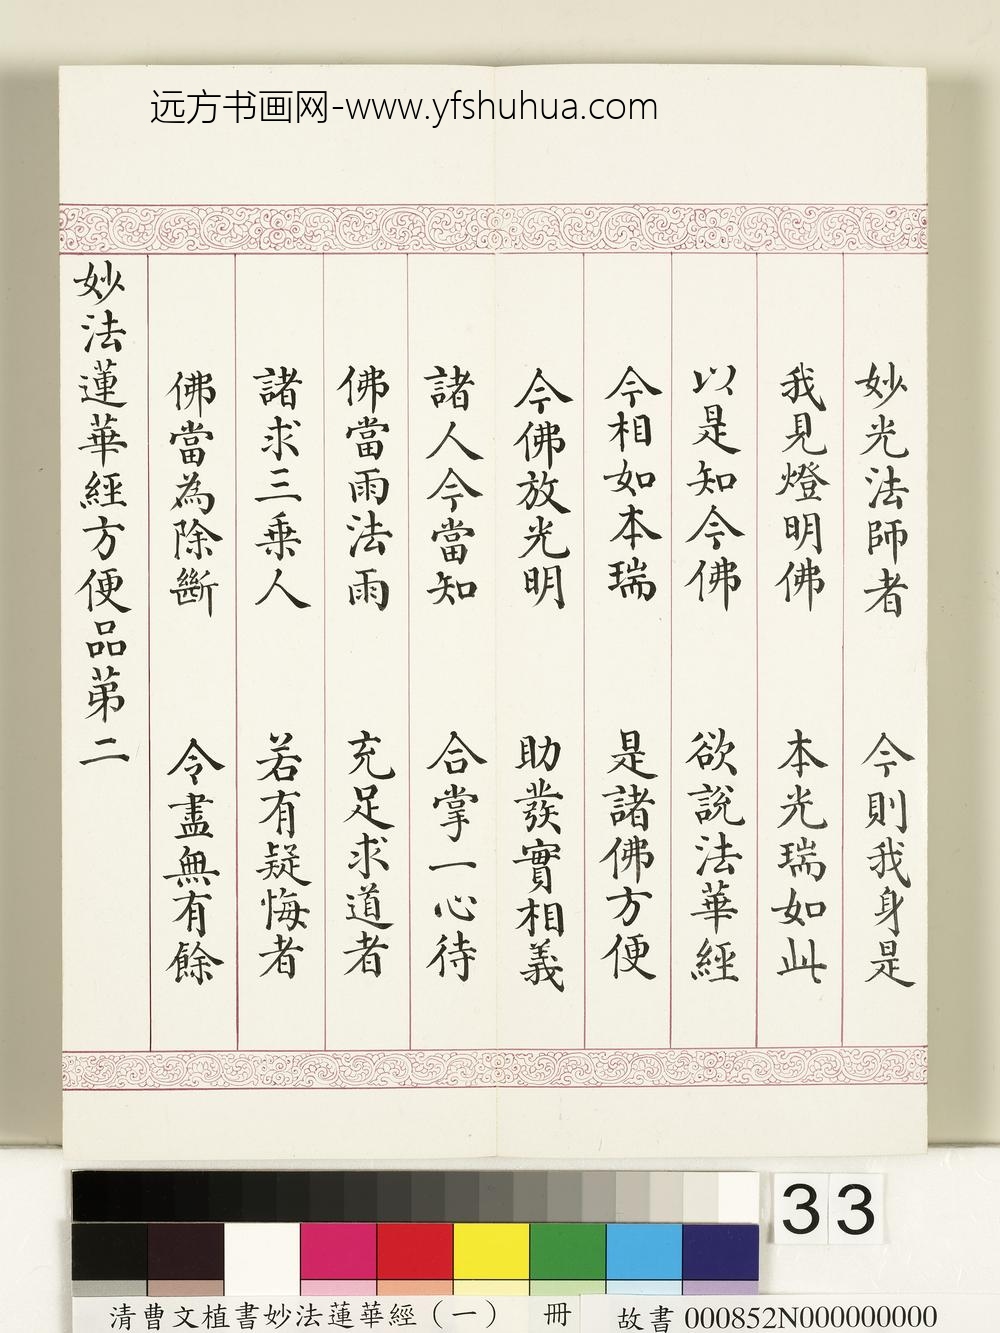 远方书画网-www.yfshuhua.com
妙光法師者　今則我身是
我見燈明佛　本光瑞如此
以是知今佛　欲說法華經
今相如本瑞　是諸佛方便
今佛放光明　助發實相義
諸人今當知　合掌一心待
佛當雨法雨　充足求道者
諸求三乘人　若有疑悔者
佛當為除斷　令盡無有餘
妙法蓮華經方便品苐二
33
清曹文植書妙法蓮華經（一）　冊　故書 000852N000000000